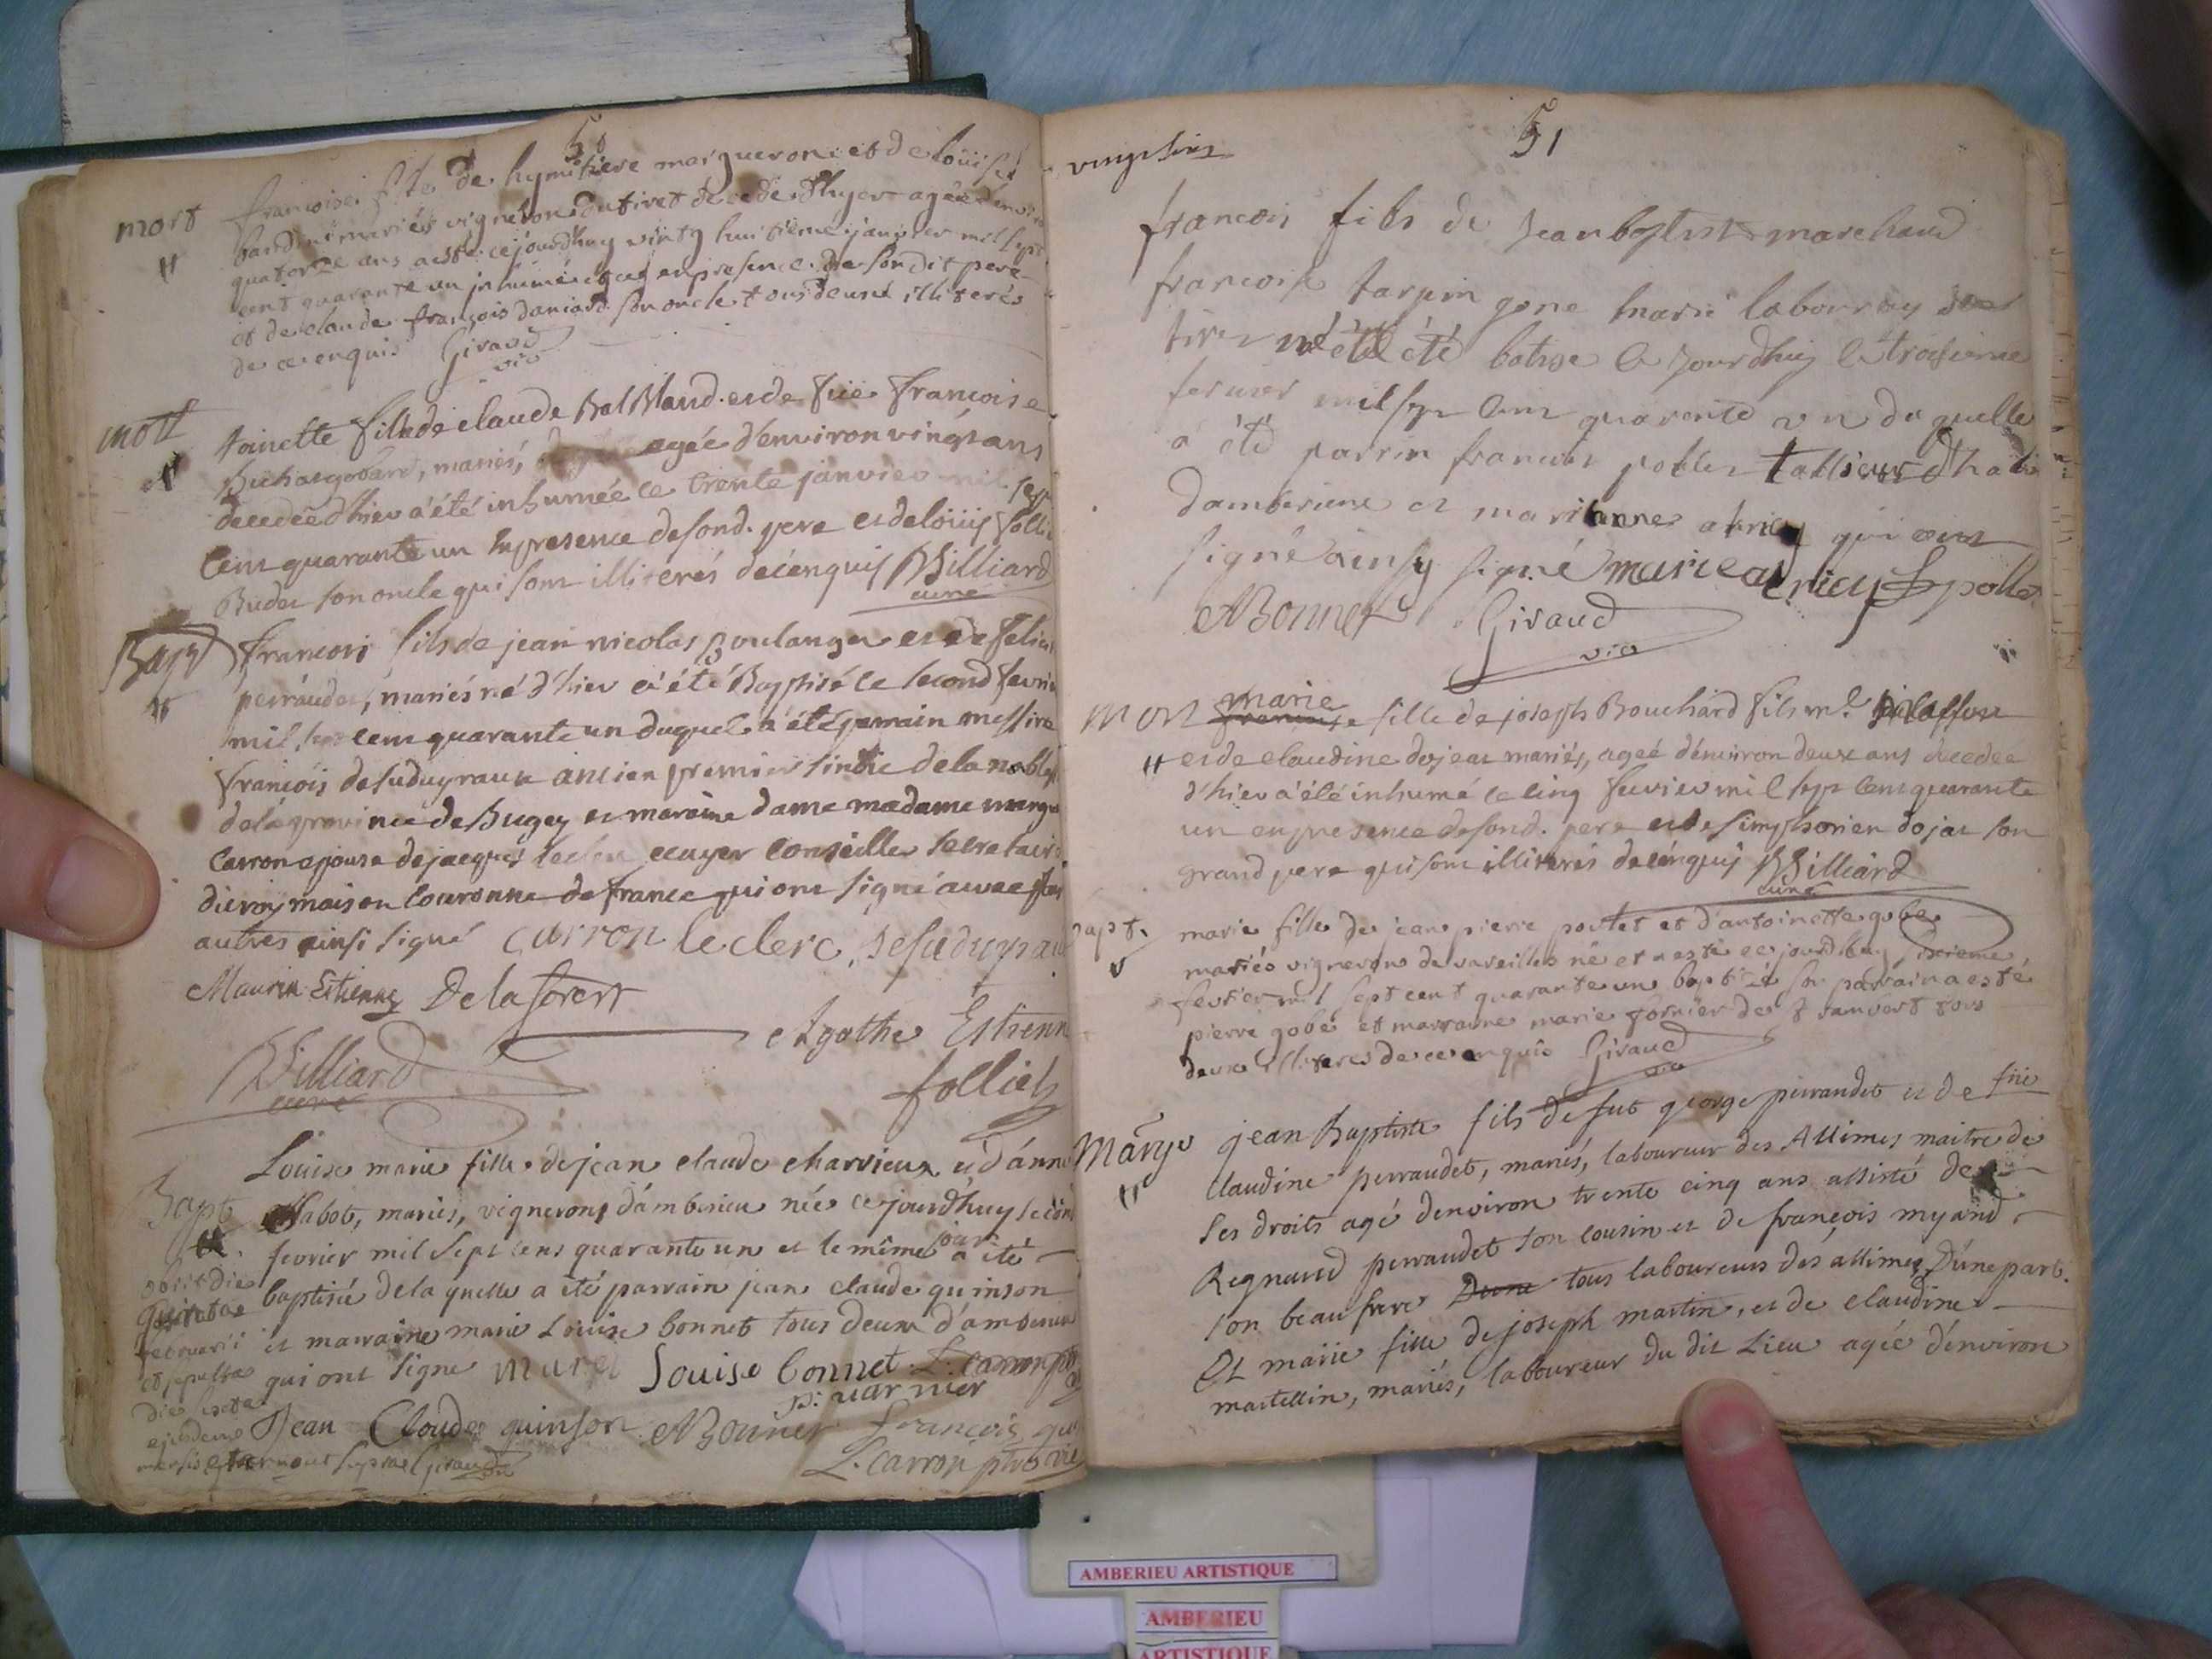 50
mort francoise fille de hymetiere margueron et de louise
mariés vigneron du tiret decede d'hyer agée d'environ
quatorze ans a esté cejourdhuy vinty huitieme janvier mil sept
cent quarante un inhumée et ce en presence de son dit pere
et de claude françois daniard son oncle tous deux illiterés
de ce enquis Giraud
vic
mort toinette fille de claude Balbland et de fue francoise
mariés, agée d'environ vingt ans
decedée d'hier a été inhumée le trente janvier mil sept
cent quarante un en presence de son d. pere et de loüis
Budet son oncle qui sont illiterés de ce enquis Billiard
curé
Bapt francois fils de jean nicolas boulanger et de
perraudet, mariés né d'hier a été Baptisé le second fevrier
mil sept cent quarante un duquel a été parrain messire
françois desuduyraux ancien premier sindic de la noblesse
de la province de Bugey et maraine dame madame
carron epouse de jacques leclerc ecuyer conseiller secretaire
du roy maison couronne de france qui ont signé avec
autres ainsi signé carron leclerc, Desuduyraux
Maurin Estienne Delaforest
Agathe Estienne
Billiard
curé
folliet
Louise marie fille de jean claude charvieux et d'anne
Bapt Nabot, mariés, vignerons d'amberieu née ce jourdhuy second
fevrier mil sept cent quarante un et le même jour a été
baptisée de la quelle a été parrain jean claude quinson
et marraine marie Louise bonnet tous deux d'amberieu
qui ont signe muret Louise bonnet L. carron
p: varnier
Jean Claude quinson Bonnet françois
L. Carron ptre vic
obiit die
quinta
februarii
et sepulta
die sexta
ejusdem
mensis supra Giraud
51
francois fils de Jean baptiste marchand
francoise tarpin gone marié labouray
tiret né été batise le jourdhuy le troisieme
fevrier mil sept cent quarente un du quelle
a été parrin francois pollet tallieur d'habi
damberieux et marianne abrier qui ont
signé ainsy signé marie abrier f polle
Bonnet Giraud
vic
mort marie fille de joseph Bouchard fils
et de claudine dojat mariés, ageé d'environ deux ans decedée
d'hier a été inhumé le cinq fevrier mil sept cent quarante
un en presence de son d. pere et de simphorien dojat son
grand pere qui sont illiterés de ce enquis Billiard
curé
bapt. marie fille de jean pierre poutet et d'antoinette gobe
mariés vigneron de vareilles né et a esté ce jourdhuy sixieme
fevrier mil sept cent quarante un baptisé son parrain a esté
pierre gobe et marraine marie fornier de st ranbert tous
deux illiteres de ce enquis Giraud
vic
Maryé jean Baptiste fils de fut george perraudet et de füe
claudine perraudet, mariés, laboureur des Allimes maitre de
ses droits agé denviron trente cinq ans assisté de
Regnaud perraudet son cousin et de françois myand
son beau frere Dune tous laboureurs des allimes, D'une part.
Et marie fille de joseph martin, et de claudine
martellin, mariés, laboureur du dit Lieu agée d'environ
AMBERIEU ARTISTIQUE
AMBERIEU
ARTISTIQUE